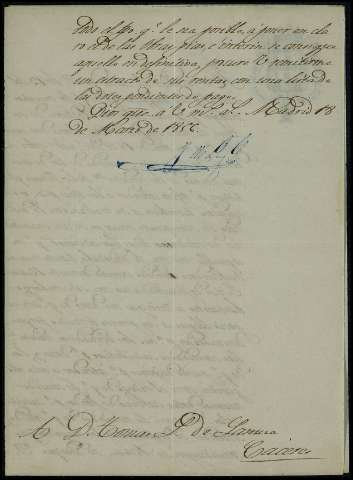 todo el tpo. q. le sea posible, á poner en cla
ro lo de las Obras pias é interin se consigue
aquello in definitiva, procure V remitirme
un estracto de sus rentas, con una lista de
las dotes pendientes de pago.
Dios gue. á V. ms. as. Madrid 18
de Marzo de 18
A D. Tomas P. de
Cáceres